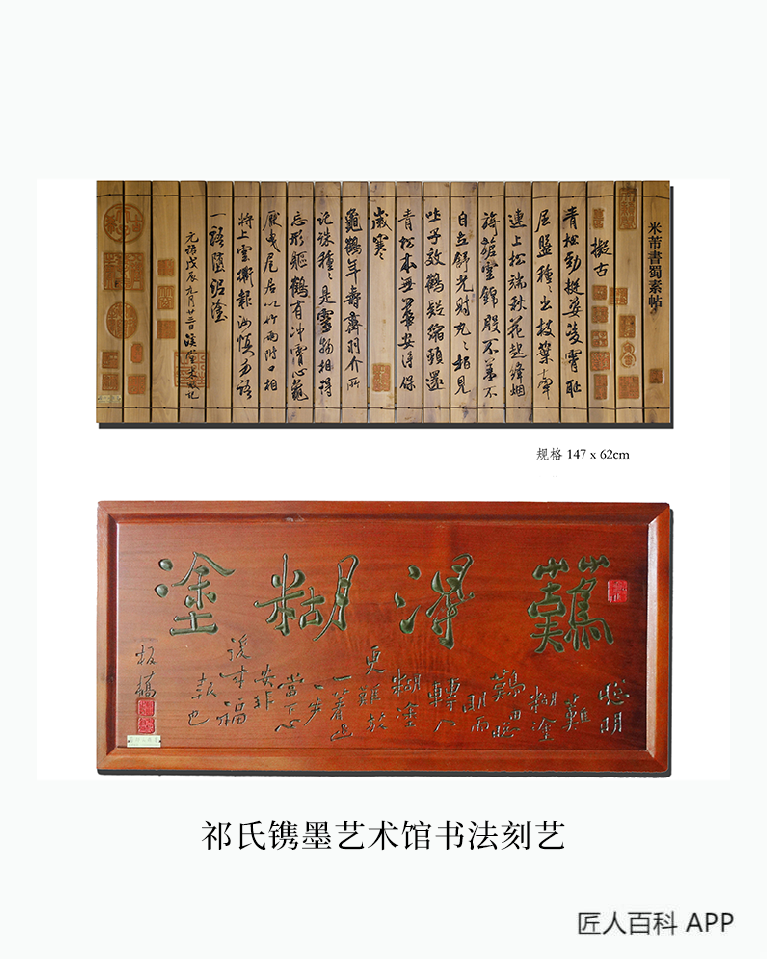 米芾書蜀素帖
擬古
青松勁挺姿凌霄恥
屈盤種種出枝葉牽
連上松端秋花起絳烟
旖旎雲錦殷不羞不
自立舒光射丸丸柏見
吐子效鶴疑縮頸還
青松本無華安得保
歲寒
龜鶴年壽齊羽介所
託殊種種是靈物相得
忘形軀鶴有冲霄心龜
厭曳尾居以竹兩附口相
將上雲衢報汝慎勿語
一語墮泥塗
元祐戊辰九月廿三日溪堂米黻記
规格 147 x 62cm
難得糊塗
聰明
難
糊塗
難由聰
明而
轉入
糊塗
更難放
一著退
一步
當下心
安非
後來福
報也
板橋
祁氏镌墨艺术馆书法刻艺
匠人百科 APP